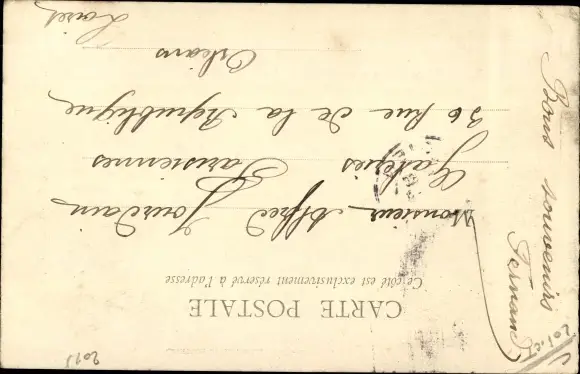 CARTE POSTALE
Ce côté est exclusivement réservé à l'adresse
Monsieur Alfred Jourdain
Galeries Parisiennes
36 Rue de la République
Orléans
Loiret
Bons souvenirs
Fernand